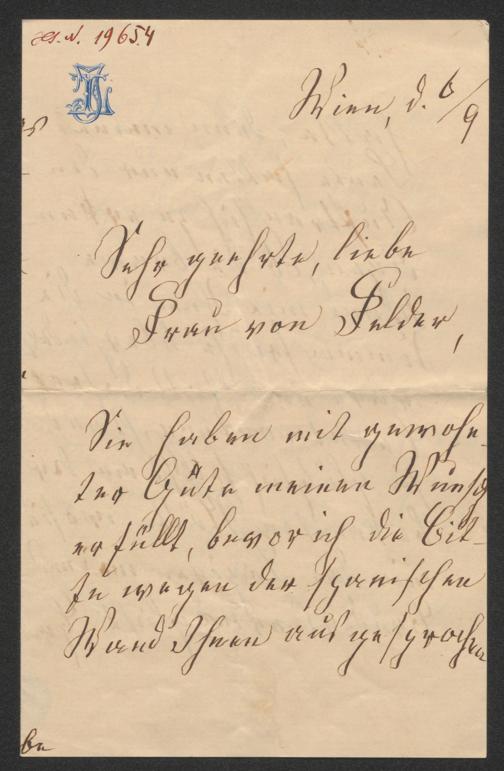 H.I.N. 19654
Wien, d. 6/9
Sehr geehrte, liebe
Frau von Felder,
Sie haben mit gewohn-
ter Güte meinen Wunsch
erfüllt, bevor ich die Bit-
te wegen der spanischen
Wand Ihnen ausgesprochen
be